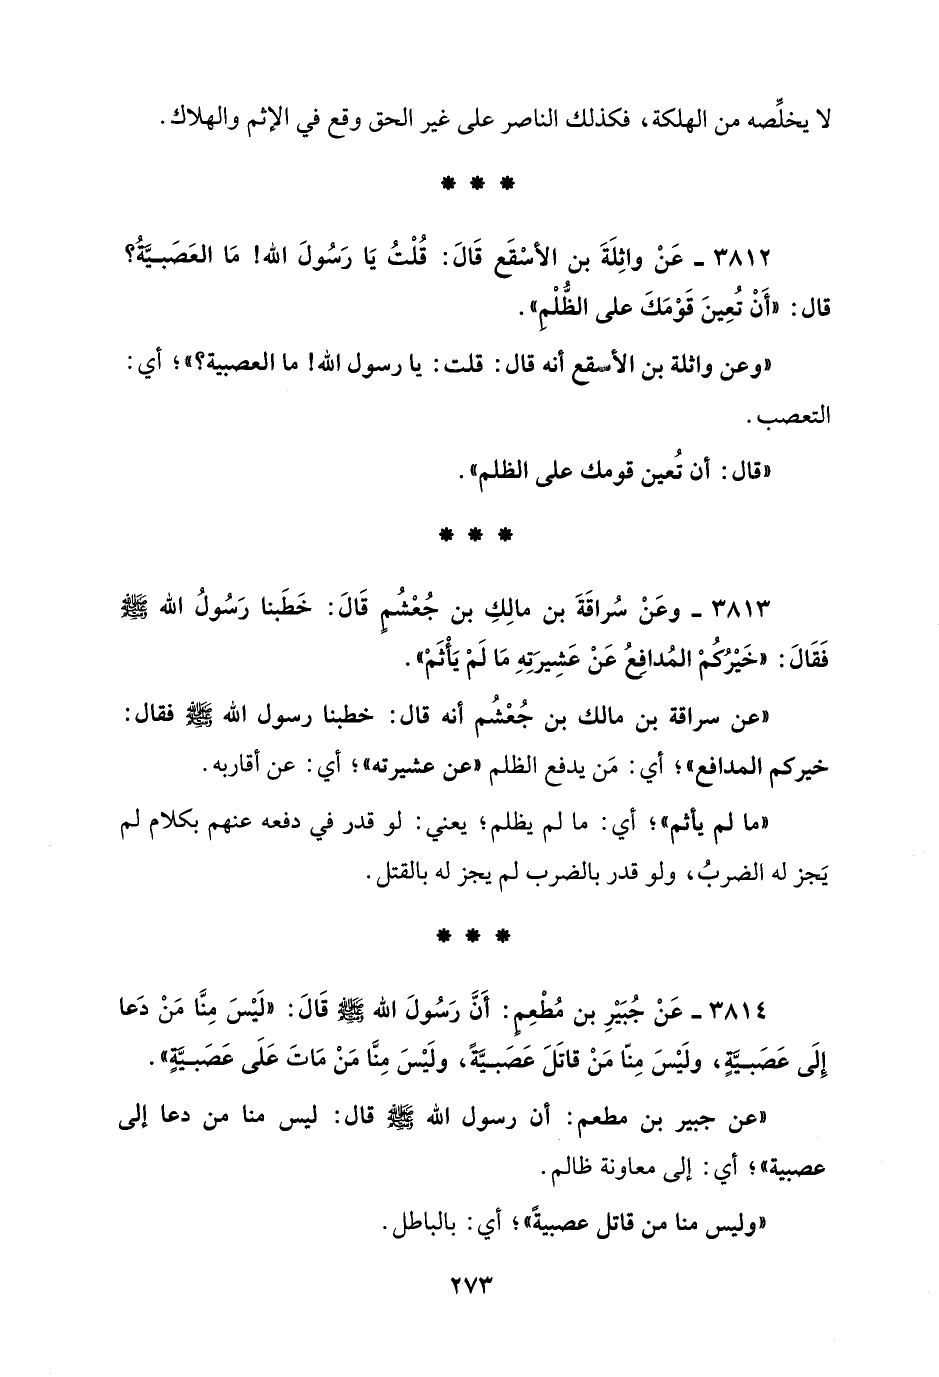 لا يخلِّصه من الهلكة، فكذلك الناصر على غير الحق وقع في الإثم والهلاك.
* * *
٣٨١٢ - عَنْ واثِلَةَ بن الأسْقَع قَالَ: قُلْتُ يَا رَسُولَ الله! مَا العَصَبيَّةُ؟
قال: «أَنْ تُعِينَ قَوْمَكَ على الظُّلْمِ».
«وعن واثلة بن الأسقع أنه قال: قلت: يا رسول الله! ما العصبية؟»؛ أي:
التعصب.
«قال: أن تُعين قومك على الظلم».
* * *
٣٨١٣ - وعَنْ سُراقَةَ بن مالِكِ بن جُعْشُمٍ قَالَ: خَطَبنا رَسُولُ الله ﷺ
فَقَالَ: «خَيْرُكُمْ المُدافِعُ عَنْ عَشِيرَتِهِ مَا لَمْ يَأْثَمْ».
«عن سراقة بن مالك بن جُعْشُم أنه قال: خطبنا رسول الله ﷺ فقال:
خيركم المدافع»؛ أي: مَن يدفع الظلم «عن عشيرته»؛ أي: عن أقاربه.
«ما لم يأثم»؛ أي: ما لم يظلم؛ يعني: لو قدر في دفعه عنهم بكلام لم
يَجز له الضربُ، ولو قدر بالضرب لم يجز له بالقتل.
* * *
٣٨١٤ - عَنْ جُبَيْرِ بن مُطْعِمٍ: أَنَّ رَسُولَ الله ﷺ قَالَ: «لَيْسَ مِنَّا مَنْ دَعا
إلَى عَصَبيَّةٍ، ولَيْسَ مِنّا مَنْ قاتَلَ عَصَبيَّةً، ولَيْسَ مِنَّا مَنْ مَاتَ عَلَى عَصَبيَّةٍ».
«عن جبير بن مطعم: أن رسول الله ﷺ قال: ليس منا من دعا إلى
عصبية»؛ أي: إلى معاونة ظالم.
«وليس منا من قاتل عصبيةً»؛ أي: بالباطل.
٢٧٣